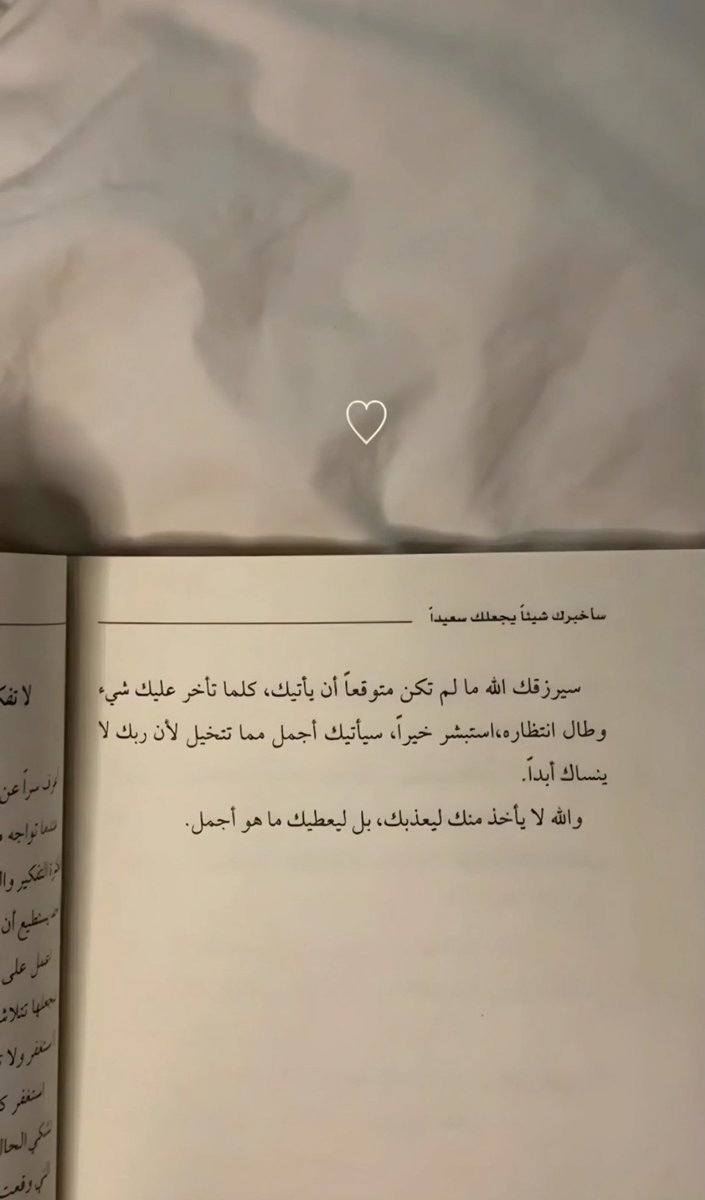 سأخبرك شيئاً يجعلك سعيداً
سيرزقك الله ما لم تكن متوقعاً أن يأتيك، كلما تأخر عليك شيء
وطال انتظاره،استبشر خيراً، سيأتيك أجمل مما تتخيل لأن ربك لا
ينساك أبداً.
والله لا يأخذ منك ليعذبك، بل ليعطيك ما هو أجمل.
لا
سراً عن
تواجه
التفكير
يستطيع أن
على
استغفر ولا
استغفر